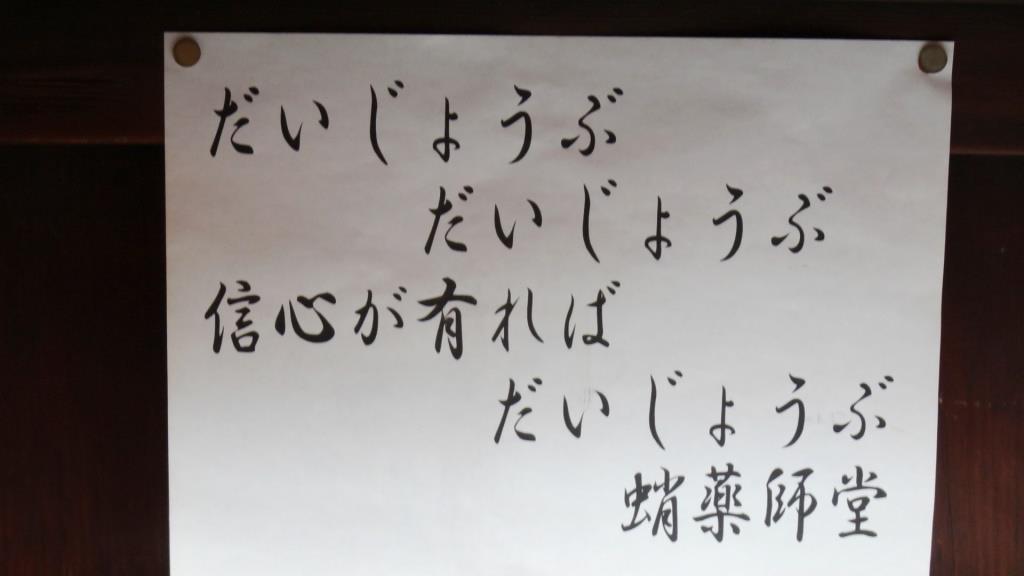 だいじょうぶ
だいじょうぶ
信心が有れば
だいじょうぶ
蛸薬師堂